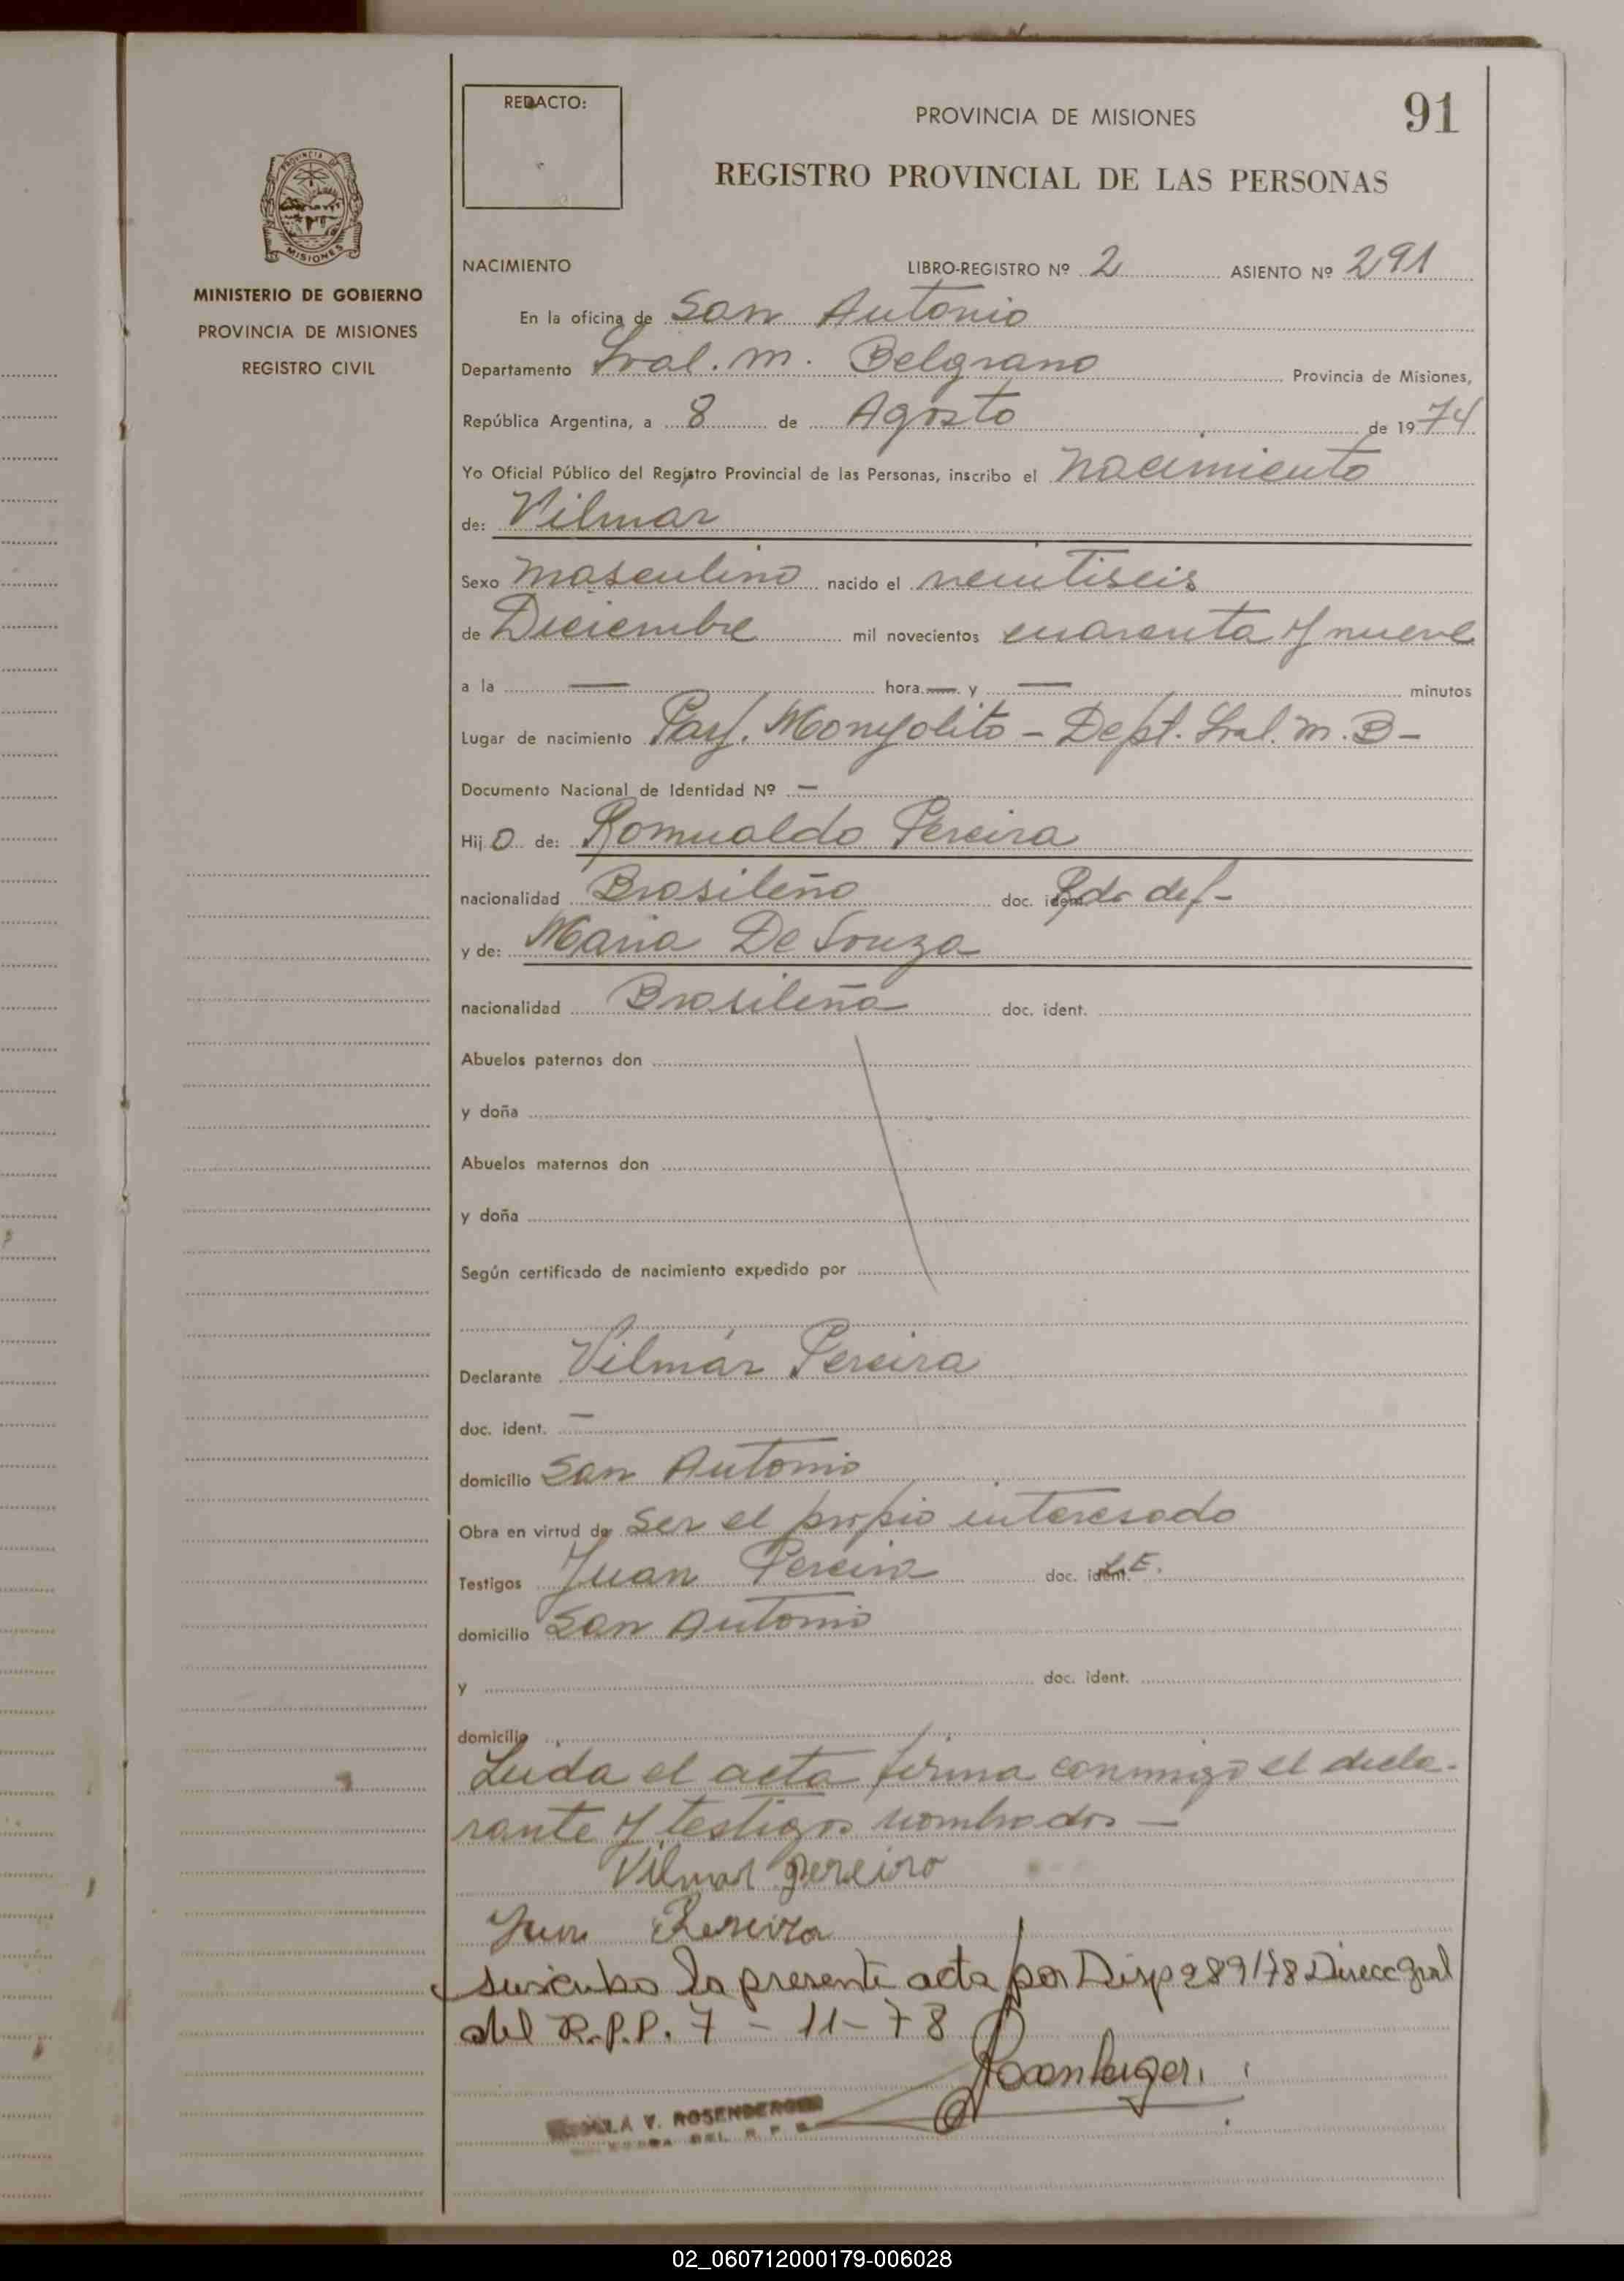 REDACTO:
PROVINCIA DE MISIONES
91
REGISTRO PROVINCIAL DE LAS PERSONAS
PROVINCIA DE
MISIONES
MINISTERIO DE GOBIERNO
PROVINCIA DE MISIONES
REGISTRO CIVIL
NACIMIENTO LIBRO-REGISTRO Nº 2 ASIENTO Nº 291
En la oficina de San Antonio
Departamento Gral. M. Belgrano Provincia de Misiones,
República Argentina, a 8 de Agosto de 1974
Yo Oficial Público del Registro Provincial de las Personas, inscribo el nacimiento
de: Vilmar
Sexo masculino nacido el veintiseis
de Diciembre mil novecientos cuarenta y nueve
a la — hora — y — minutos
Lugar de nacimiento Parj. Monyolito - Dept. Gral. M. B -
Documento Nacional de Identidad Nº —
Hijo de: Romualdo Pereira
nacionalidad Brasileño doc. ident.
y de: Maria De Souza
nacionalidad Brasileña doc. ident.
Abuelos paternos don
y doña
Abuelos maternos don
y doña
Según certificado de nacimiento expedido por
Declarante Vilmár Pereira
doc. ident. —
domicilio San Antonio
Obra en virtud de ser el propio interesado
Testigos Juan Pereira doc. ident. L.E.
domicilio San Antonio
y doc. ident.
domicilio
Leida el acta firma conmigo el decla-
rante y testigos nombrados —
Vilmar Pereira
Juan Pereira
suscribo la presente acta por Disp 289/78 Direcc Gral
del R.P.P. 7 - 11 - 78
V. ROSENBERGER
DEL R P P
02_060712000179-006028